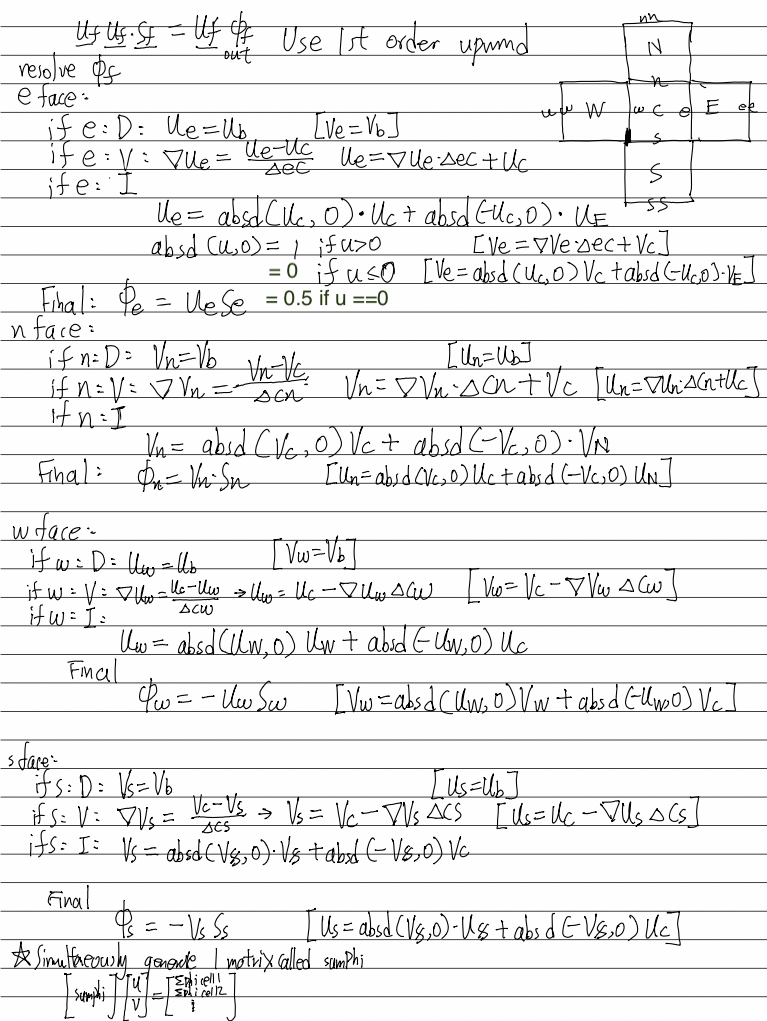 u_f u_f·S_f = u_f ϕ_f out Use 1st order upwind
nn
N
n
uw W w C e E ee
s
S
ss
resolve ϕ_f
e face:-
if e: D: u_e=u_b [V_e=V_b]
if e: V: ∇u_e= (u_e-u_c)/Δec u_e=∇u_e·Δec+u_c
if e: I
u_e= absd(u_c,0)·u_c+absd(-u_c,0)·u_E
absd (u,0)= 1 if u>0 [V_e=∇V_e·Δec+V_c]
= 0 if u≤0 [V_e=absd(u_c,0)V_c+absd(-u_c,0)·V_E]
Final: ϕ_e = u_e S_e = 0.5 if u ==0
n face:
if n: D: V_n=V_b [u_n=u_b]
if n: V: ∇V_n = (V_n-V_c)/Δcn V_n=∇V_n·Δcn+V_c [u_n=∇u_n·Δcn+u_c]
if n: I
V_n= absd(V_c,0)V_c+ absd(-V_c,0)·V_N
Final: ϕ_n=V_n·S_n [u_n=absd(V_c,0)u_c+absd(-V_c,0)u_N]
w face:-
if w: D: u_w=u_b [V_w=V_b]
if w: V: ∇u_w=(u_c-u_w)/Δcw →u_w= u_c-∇u_wΔcw [V_w=V_c-∇V_wΔcw]
if w: I:
u_w= absd(u_W,0) u_W+ absd(-u_W,0) u_c
Final
ϕ_w=-u_w S_w [V_w=absd(u_W,0)V_W+absd(-u_W,0) V_c]
s face:-
if s: D: V_s=V_b [u_s=u_b]
if s: V: ∇V_s= (V_c-V_s)/Δcs → V_s= V_c-∇V_s Δcs [u_s=u_c-∇u_s Δcs]
if s: I: V_s= absd(V_S,0)·V_S+absd(-V_S,0)V_c
Final
ϕ_s = -V_s S_s [u_s=absd(V_S,0)·u_S+absd(-V_S,0)u_c]
☆ Simultaneously generate 1 matrix called sumPhi
[sumphi][u V]=[Σphi cell 1 Σphi cell 2 ⋮]